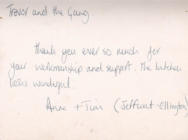 Trevor and the Gang
Thank you ever so much for
your workmanship and support. The kitchen
looks wonderful.
Anne + Tim (Jettfurt-Ellington)